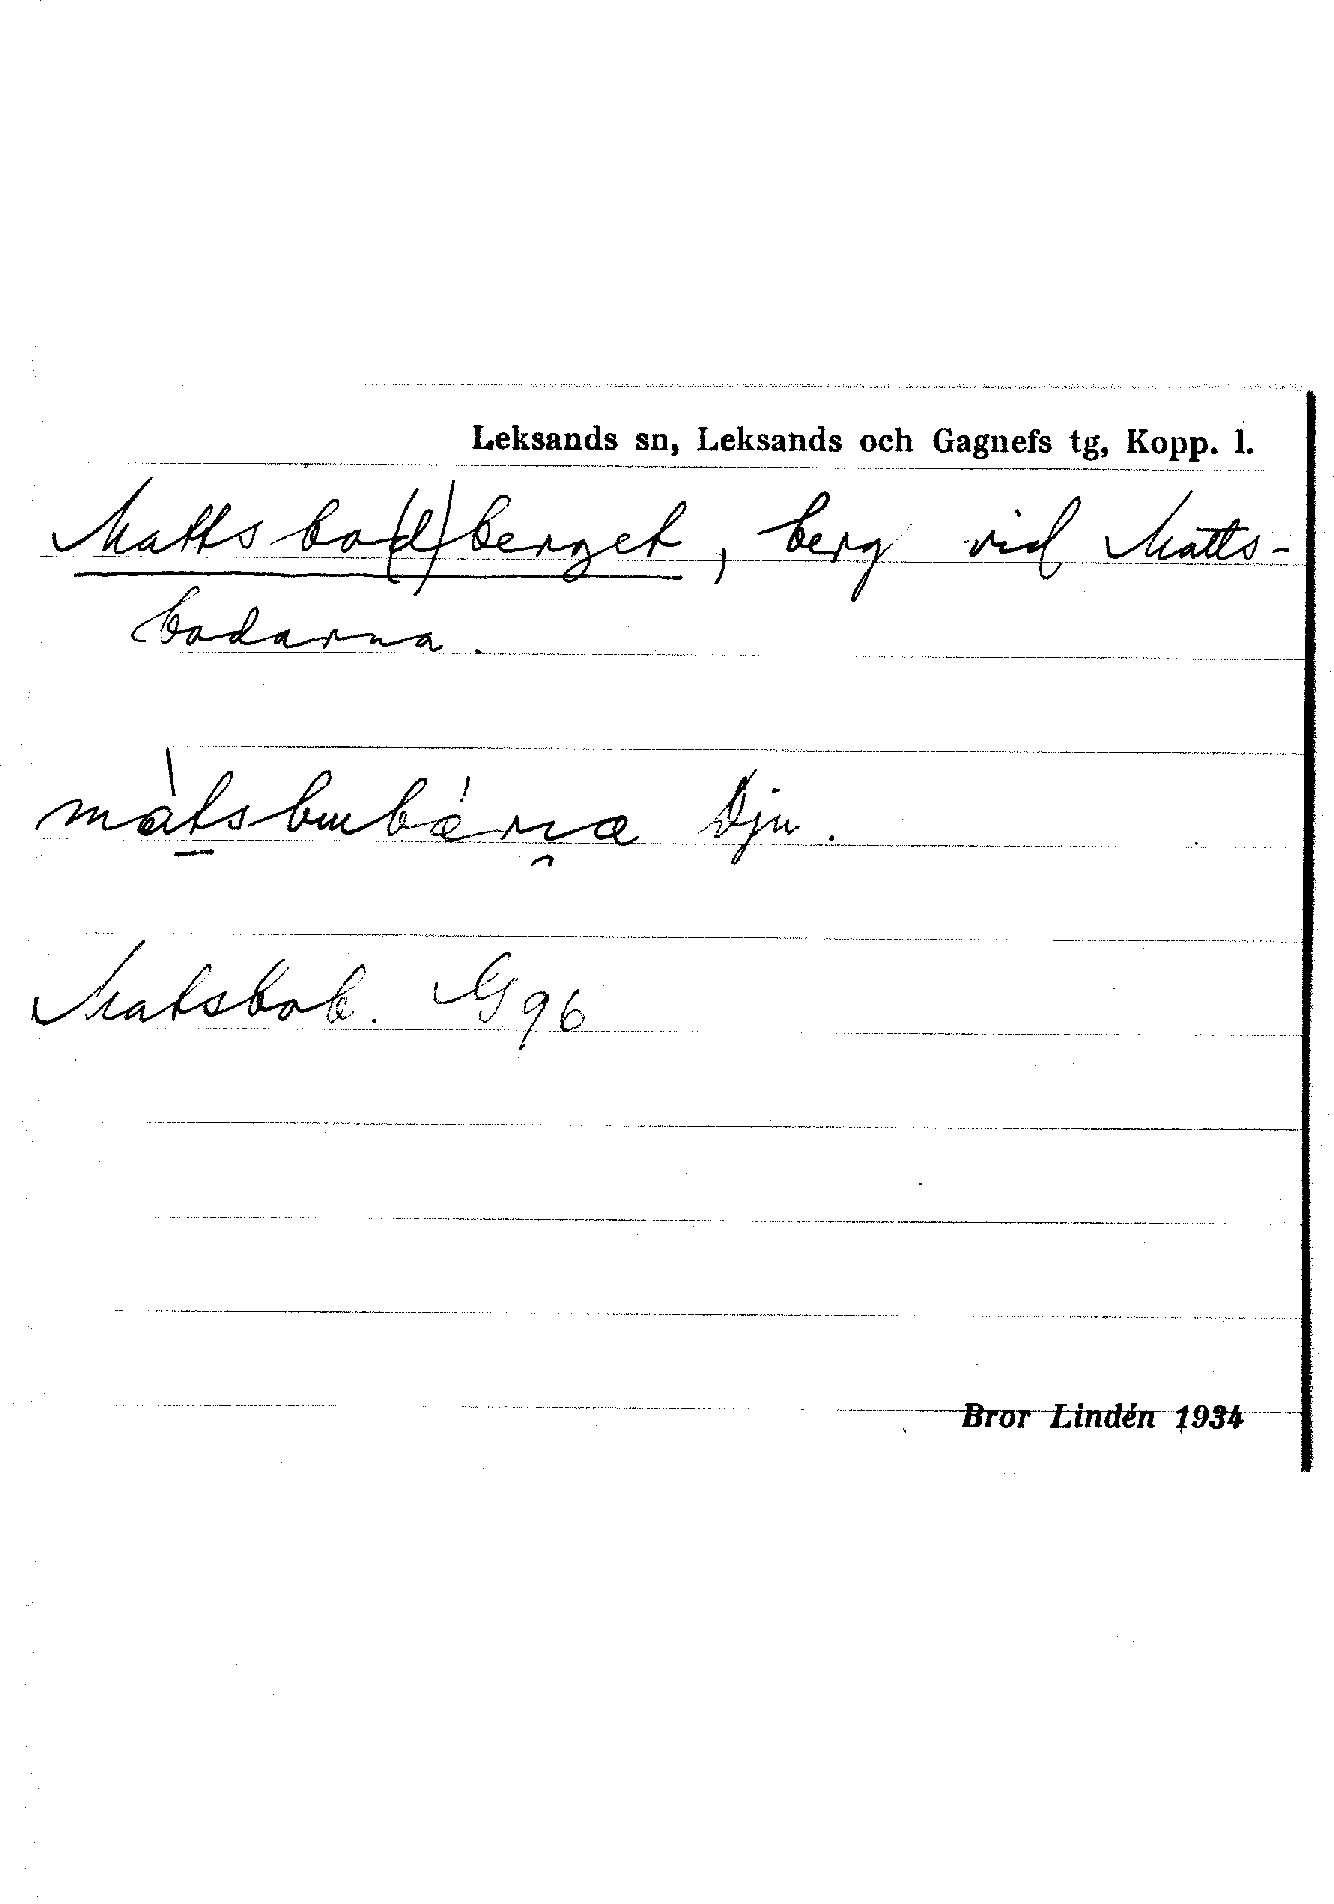 Leksands sn, Leksands och Gagnefs tg, Kopp. l.
Mattsbo(d)berget, berg vid Matts-
bodarna.
Dju.
Matsbob. G96
Bror Lindén 1934